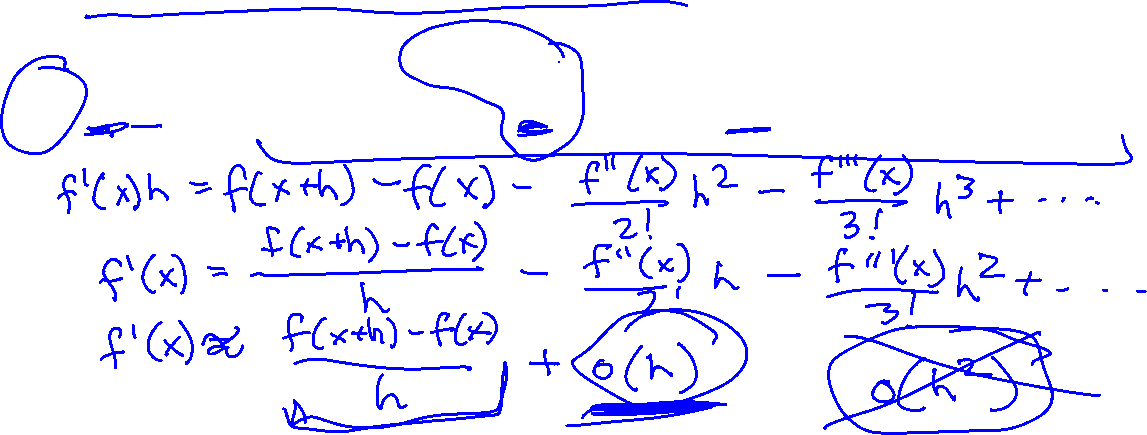 f'(x)h = f(x+h) - f(x) - f''(x)/2! h² - f'''(x)/3! h³ + ...
f'(x) = (f(x+h) - f(x))/h - f''(x)/2! h - f'''(x)/3! h² + ...
f'(x) ≈ (f(x+h) - f(x))/h + o(h) o(h²)